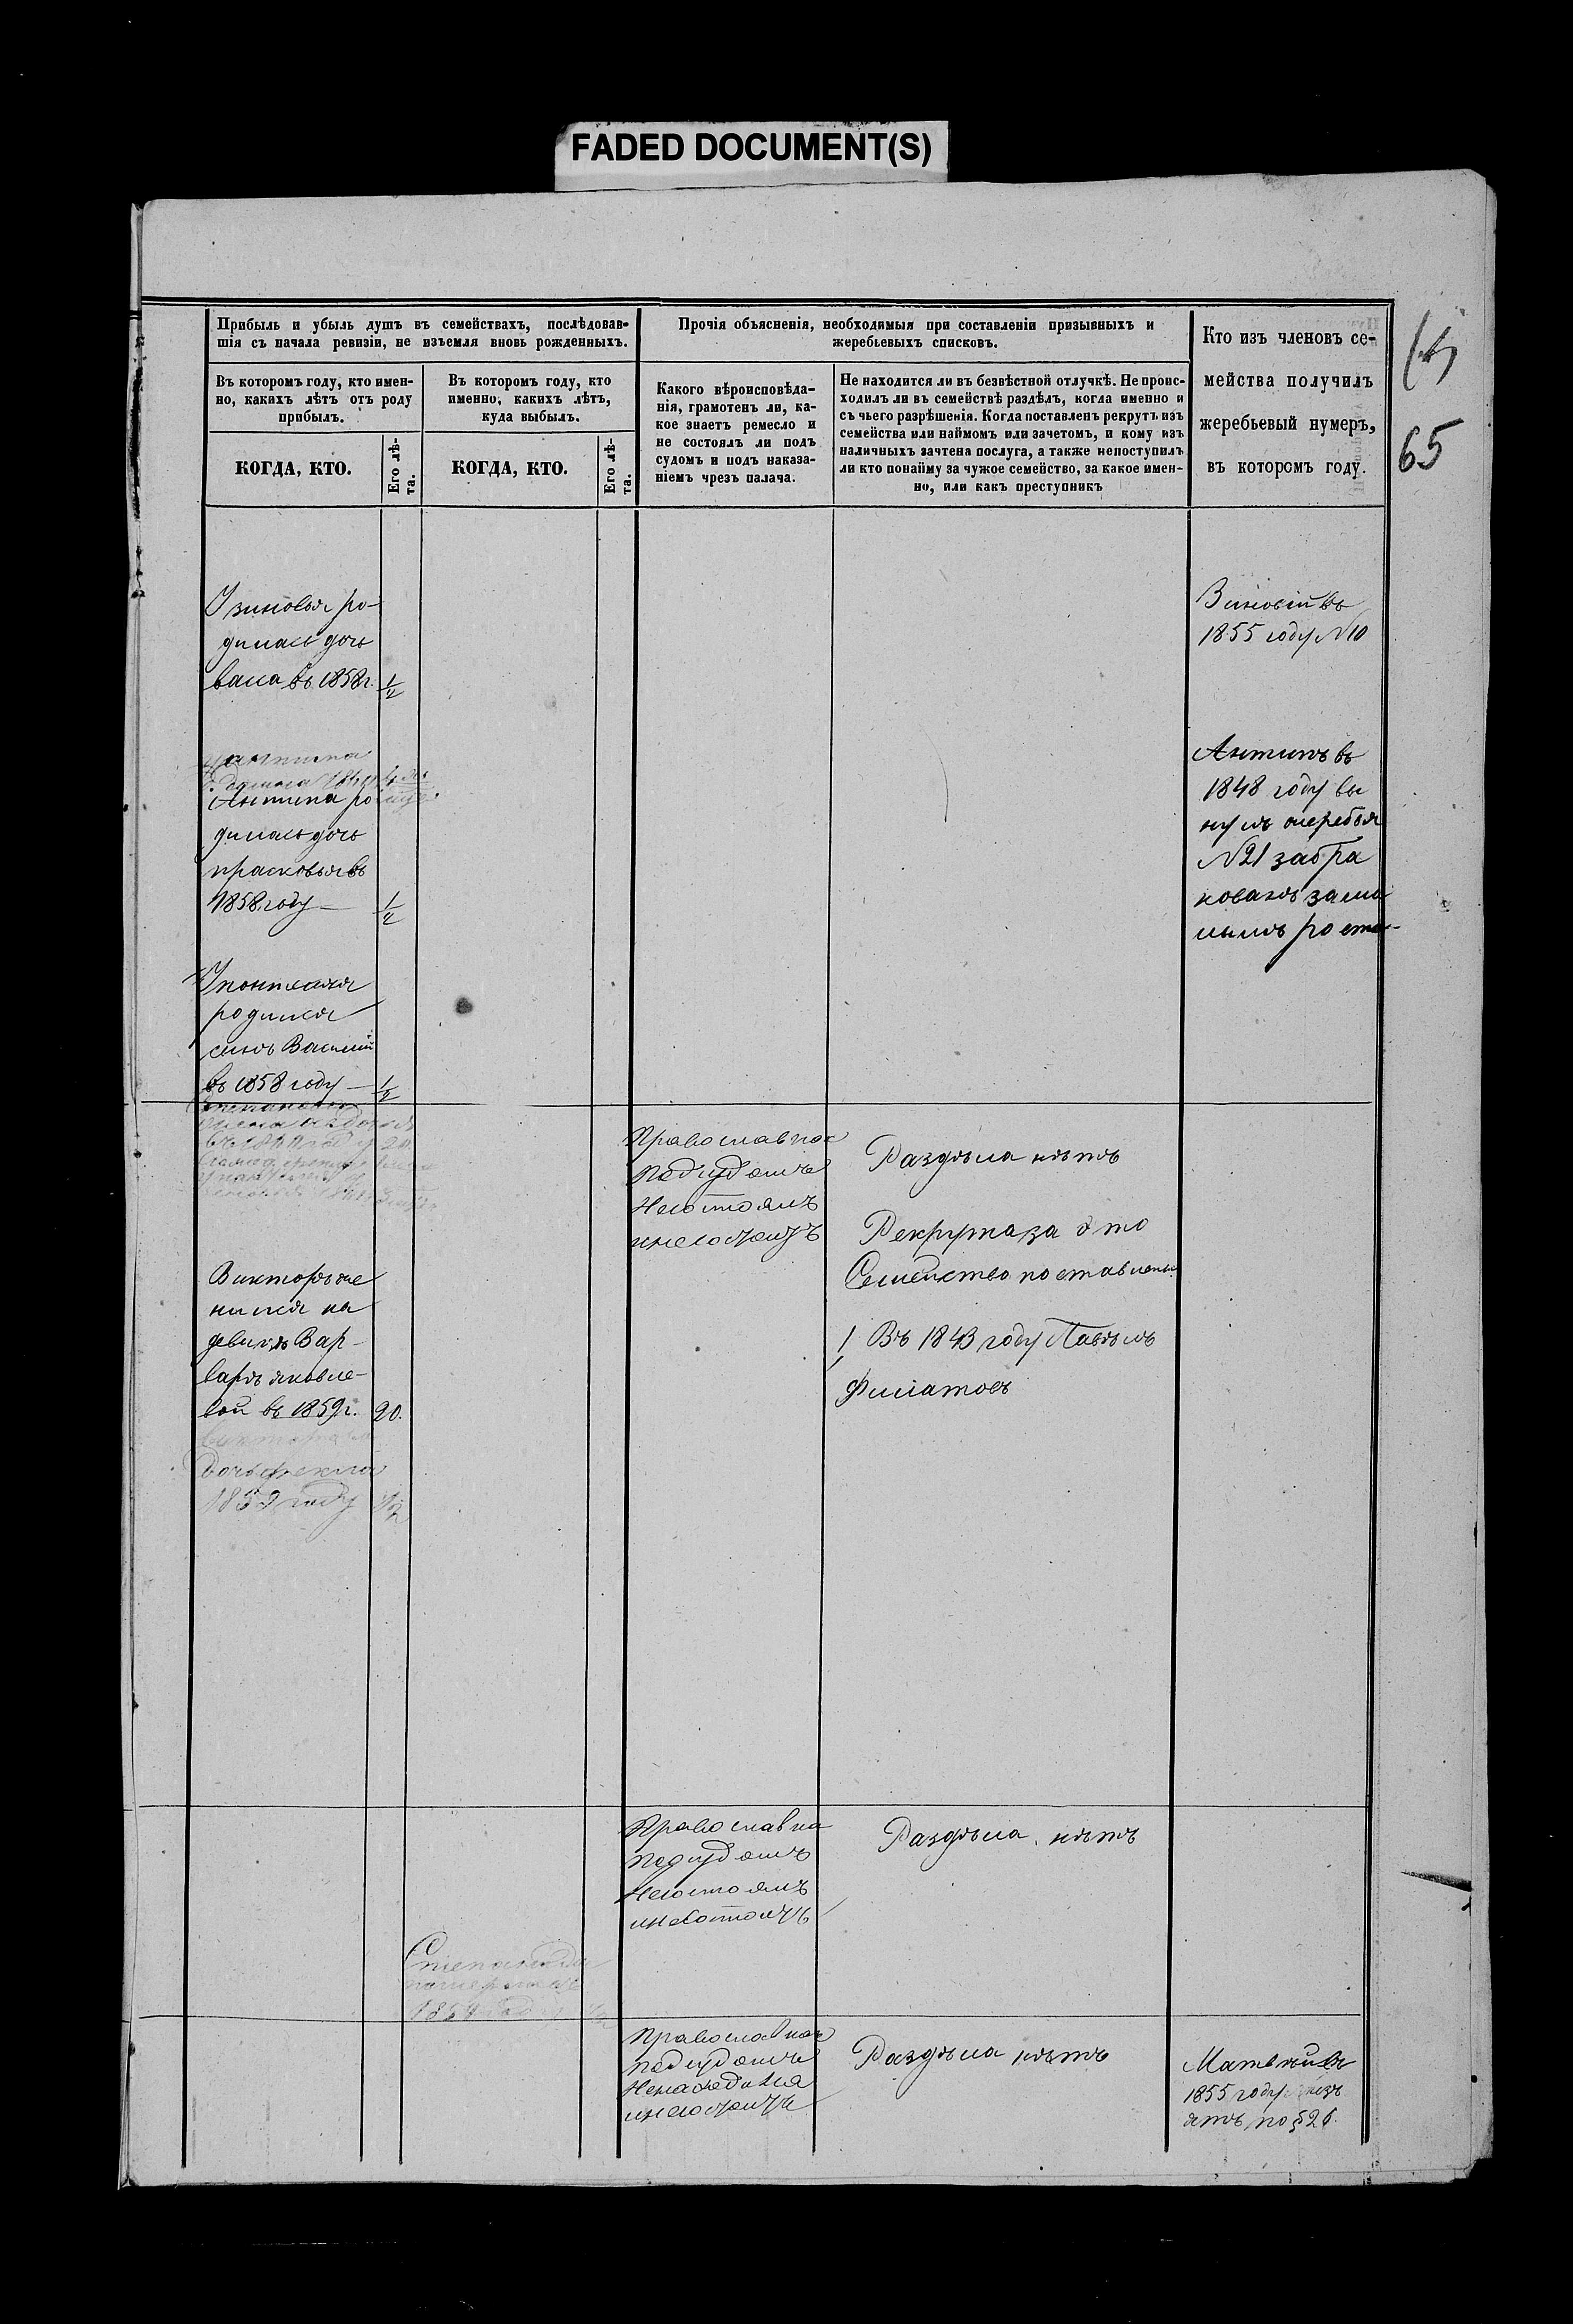 FADED DOCUMENT(S)
Прибыль и убыль душъ въ семействахъ, послѣдовав-
шія съ начала ревизіи, не изъемля вновь рожденныхъ.
Прочія объясненія, необходимыя при составленіи призывныхъ и
жеребьевыхъ списковъ.
Кто изъ членовъ се-
мейства получилъ
жеребьевый нумеръ,
въ которомъ году.
65
Въ которомъ году, кто имен-
но, какихъ лѣтъ отъ роду
прибылъ.
Въ которомъ году, кто
именно, какихъ лѣтъ,
куда выбылъ.
Какого вѣроисповѣда-
нія, грамотенъ ли, ка-
кое знаетъ ремесло и
не состоялъ ли подъ
судомъ и подъ наказа-
ніемъ чрезъ палача.
Не находится ли въ безвѣстной отлучкѣ. Не проис-
ходилъ ли въ семействѣ раздѣлъ, когда именно и
съ чьего разрѣшенія. Когда поставленъ рекрутъ изъ
семейства или наймомъ или зачетомъ, и кому изъ
наличныхъ зачтена послуга, а также непоступилъ
ли кто понайму за чужое семейство, за какое имен-
но, или какъ преступникъ
КОГДА, КТО.
Его лѣ-
та.
КОГДА, КТО.
Его лѣ-
та.
Узиновья ро-
дилась дочь
въ 1858 г. 1/2
Зиновій въ
1855 году №10
Антипа ро
дилась дочь
прасковья въ
1858 году — 1/2
Антипъ въ
1848 году вы
нулъ жеребья
№21 забра
кованъ зама
лымъ росто
родился
сынъ Василий
въ 1858 году — 1/2
Православнаг
Подсудомъ
Несостоялъ
инесостоитъ
Раздѣла нѣтъ
Рекрута за это
Семейство поставлены
1, Въ 1843 году Павѣлъ
Филатовъ
Викторъ же
нился на
девикѣ Вар-
варѣ яковле-
вой въ 1859 г. 20.
дочь фекла
1859 году 1/2
Православна
Подсудомъ
Несостоялъ
инесостоитъ
Раздѣла нѣтъ
Степанида
Православнаг
подсудомъ
Ненаходился
инесостоитъ
Раздѣла нѣтъ
Матвѣй въ
1855 году изъ
ятъ по §26.